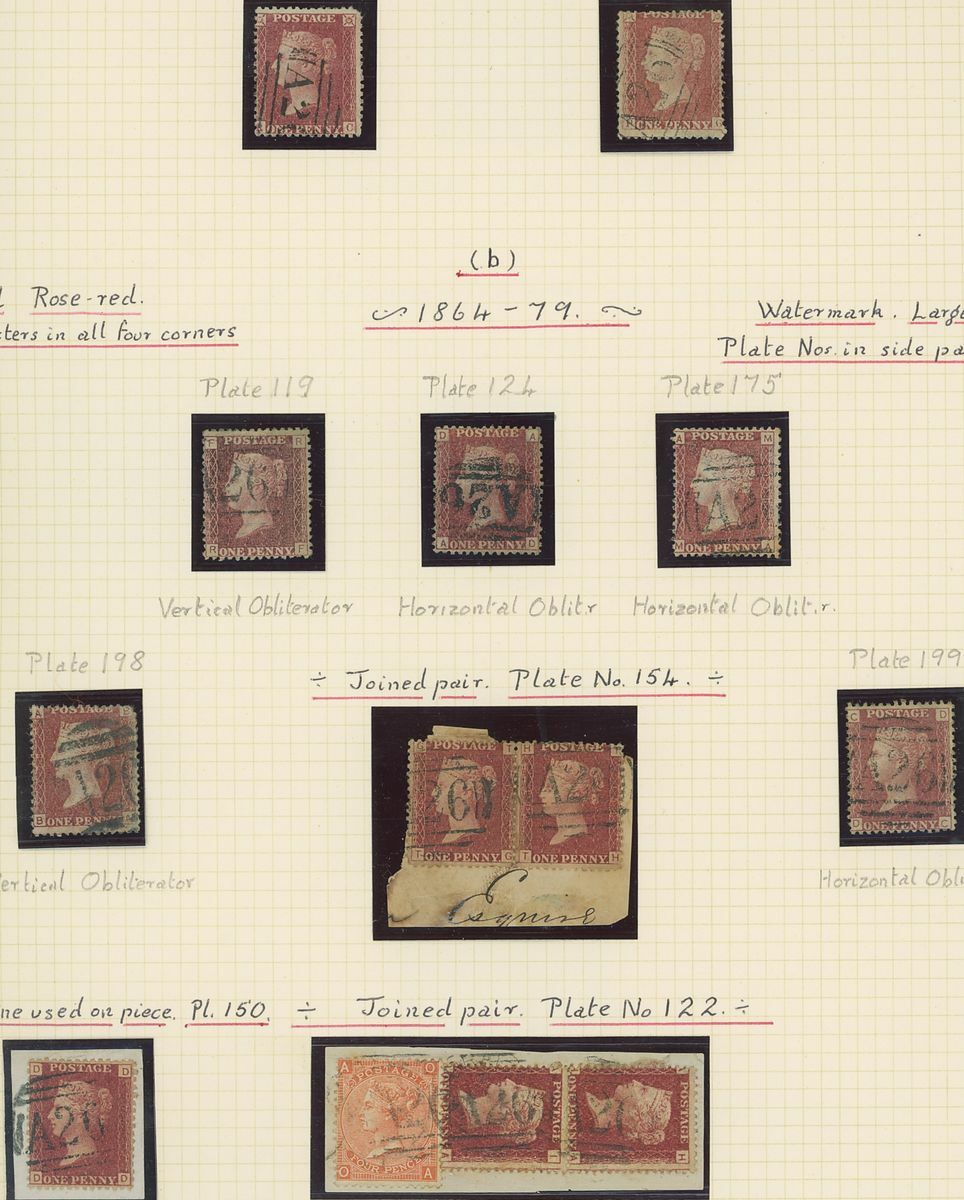 POSTAGE
A2
ONE PENNY
C
POSTAGE
ONE PENNY
G
(b)
Rose-red.
1864-79.
Watermark. Large
in all four corners
Plate Nos. in side
Plate 119
Plate 124
Plate 175
F POSTAGE R
26
R ONE PENNY F
D POSTAGE A
A26
A ONE PENNY D
A POSTAGE M
A2
M ONE PENNY A
Vertical Obliterator
Horizontal Oblitr
Horizontal Oblit.r.
Plate 198
÷ Joined pair. Plate No. 154. ÷
Plate 199
POSTAGE
A26
B ONE PENNY
G POSTAGE T
26
T ONE PENNY G
H POSTAGE T
A2
T ONE PENNY H
Esquire
C POSTAGE D
A26
D ONE PENNY C
Vertical Obliterator
Horizontal
used on piece. Pl. 150.
÷ Joined pair. Plate No 122. ÷
D POSTAGE D
A26
D ONE PENNY D
A POSTAGE O
O FOUR PENCE A
POSTAGE
A26
ONE PENNY
I
POSTAGE
ONE PENNY
H